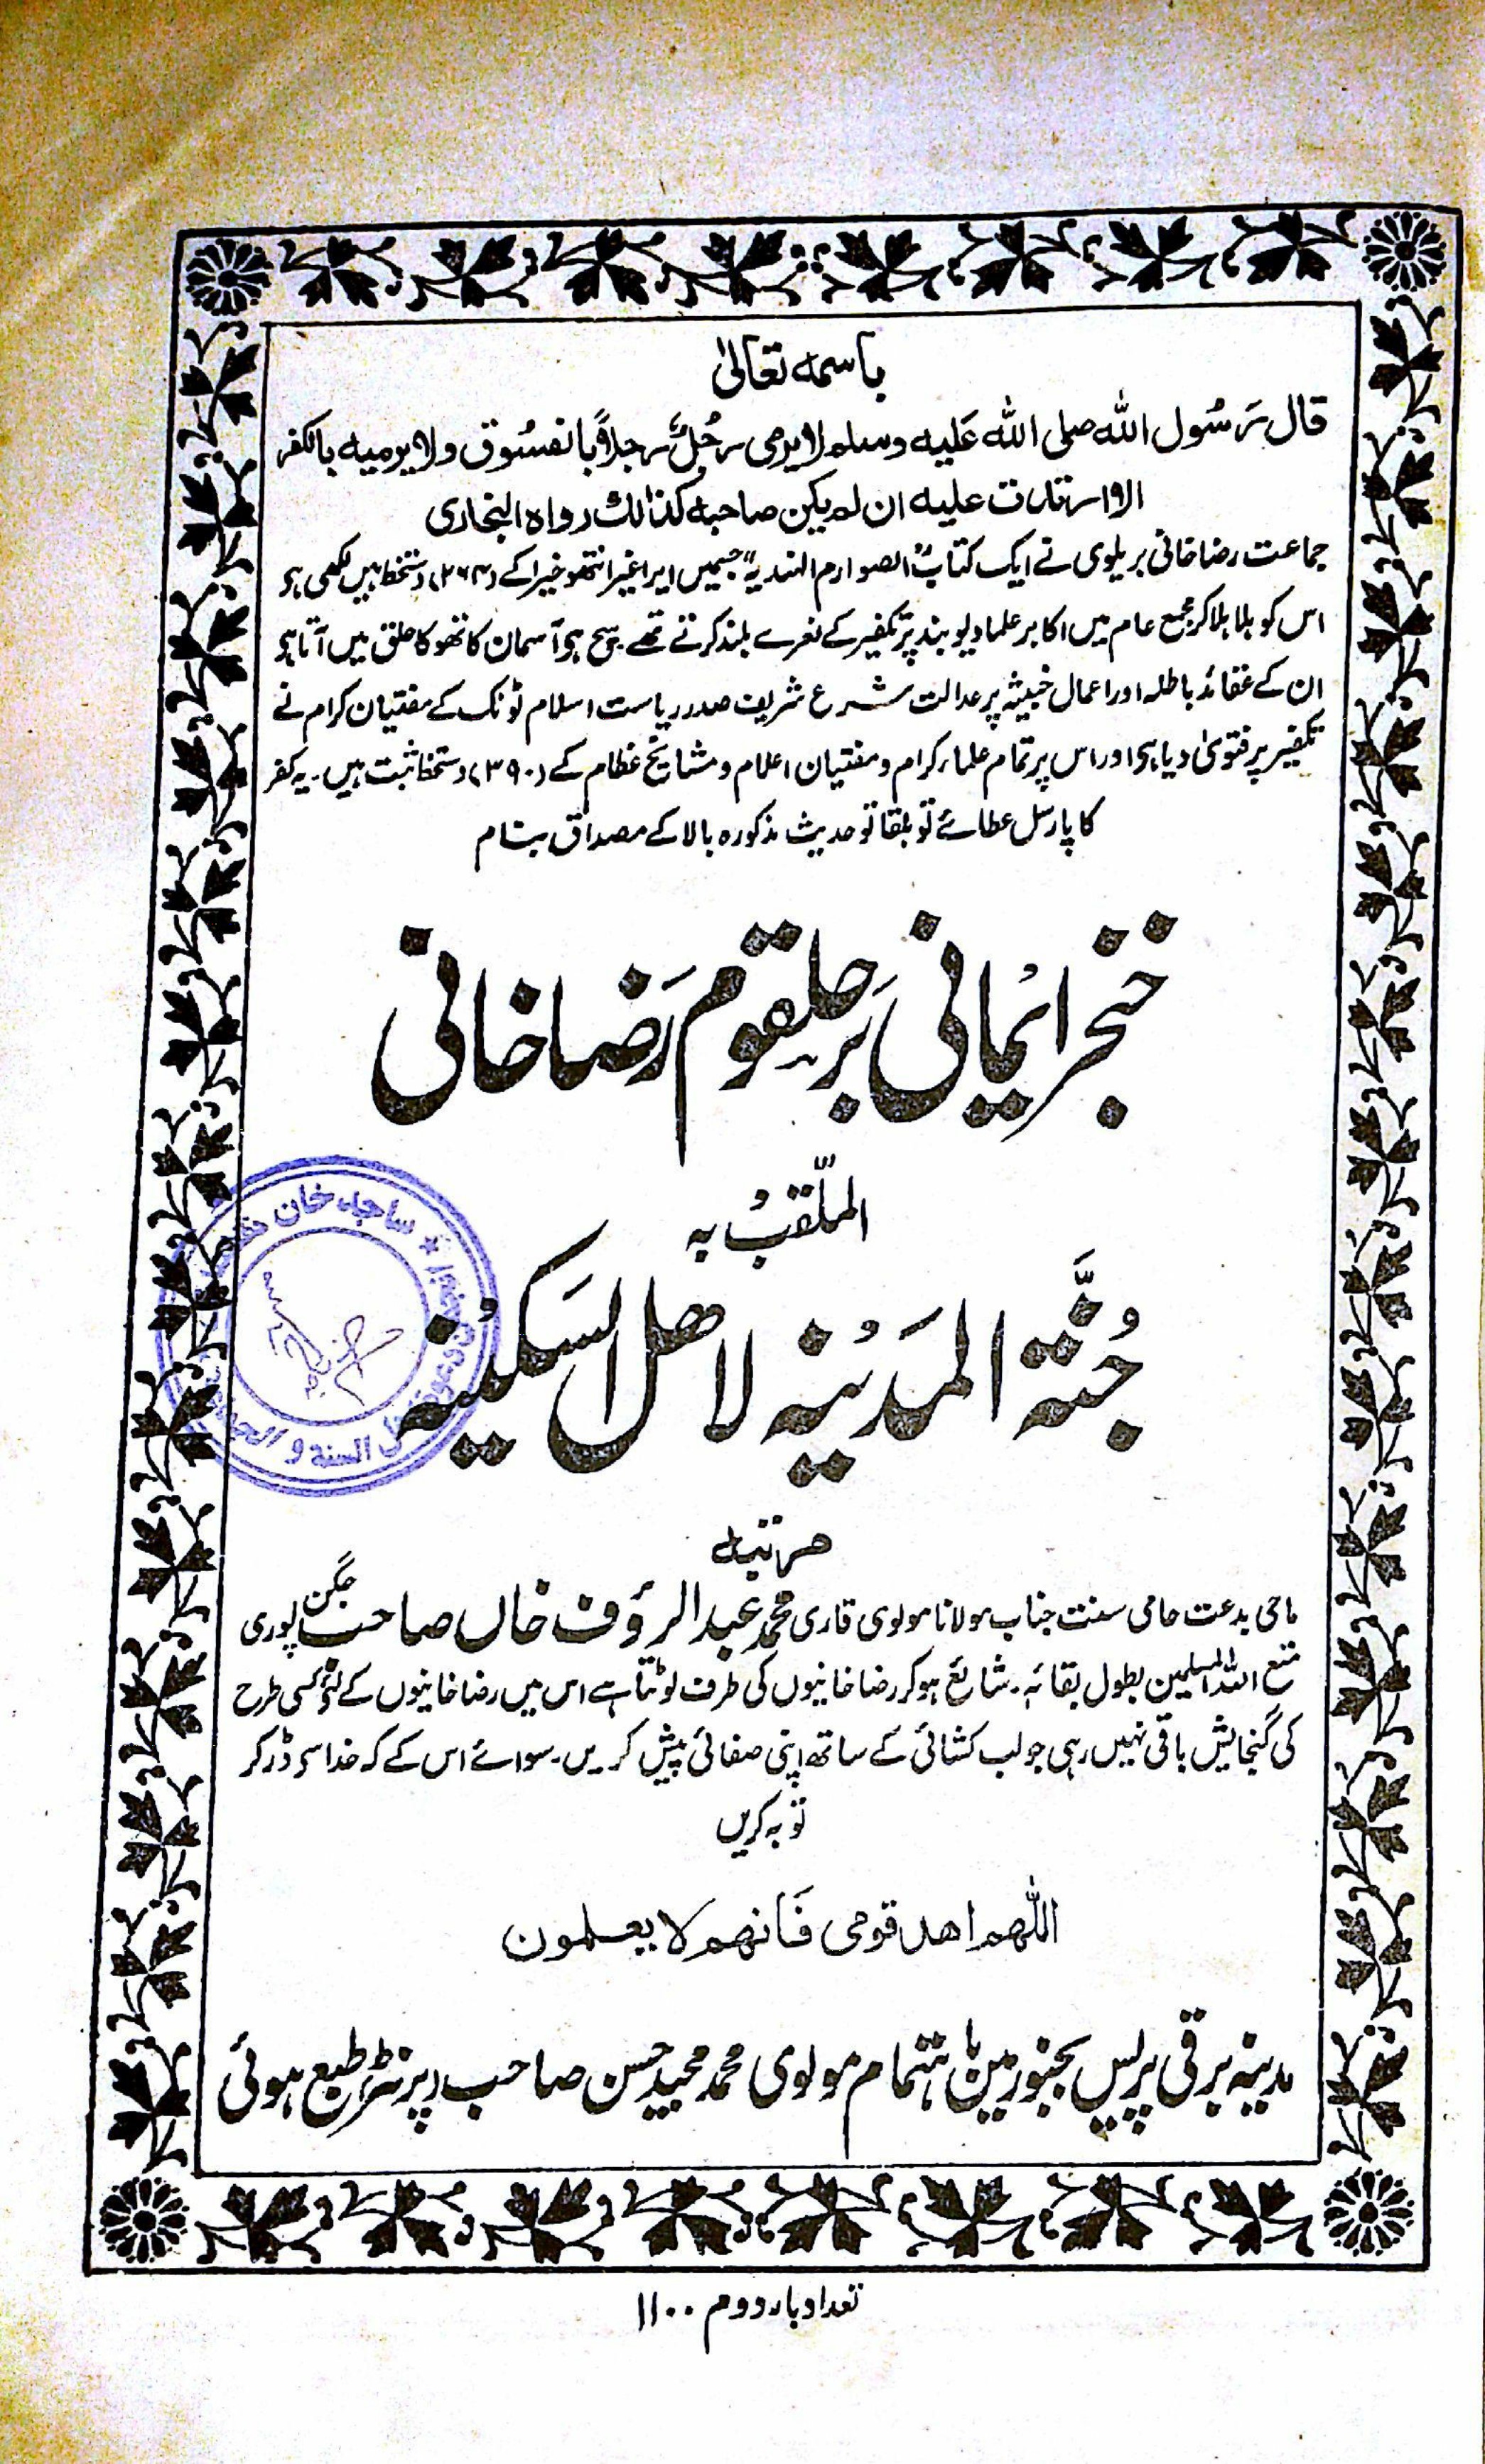 باسمہ تعالیٰ
قال رَسُول اللہ صلی اللہ عَلیہ وسلم لا یرمی رجُلٌ رجلاً بالفسُوق ولا یرمیہ بالکفر
الا ارتدت علیہ ان لم یکن صاحبہ کذالک رواہ البخاری
جماعت رضاخانی بریلوی نے ایک کتاب "الصوارم الہندیہ" جسمیں ایرا غیرا نتھو خیرا کے (۲۶۴) دستخط ہیں لکھی ہے
اس کو ہلا ہلا کر مجمع عام میں اکابر علما دیوبند پر تکفیر کے نعرے بلند کرتے تھے سچ ہے آسمان کا تھوکا حلق میں آتا ہے
ان کے عقائد باطلہ اور اعمال خبیثہ پر عدالت شرع شریف صدر ریاست اسلام ٹونک کے مفتیان کرام نے
تکفیر پر فتویٰ دیا ہے اور اس پر تمام علماء کرام و مفتیان اعلام و مشایخ عظام کے (۳۹۰) دستخط ثبت ہیں۔ یہ کفر
کا پارسل عطائے تو بلقا تو حدیث مذکورہ بالا کے مصداق بنام
خنجر ایمانی بَر حلقوم رَضاخانی
الملقّبُ بہ
جُنَّۃ المَدِیْنہ لاھل السَکِیْنہ
مرتبہ
ماحی بدعت حامی سنت جناب مولانا مولوی قاری محمد عبد الرؤف خاں صاحب جگن پوری
متع اللہ المسلمین بطول بقائہ۔ شایع ہو کر رضاخانیوں کی طرف لوٹتا ہے اس میں رضاخانیوں کے لئے کسی طرح
کی گنجایش باقی نہیں رہی جو لب کشائی کے ساتھ اپنی صفائی پیش کریں۔ سوائے اس کے کہ خدا سے ڈر کر
توبہ کریں
اللّٰھم اھد قومی فَانھم لا یعلمون
مدینہ برقی پریس بجنور میں باہتمام مولوی محمد مجید حسن صاحب پرنٹر طبع ہوئی
تعداد بار دوم ۱۱۰۰
ساجد خان
اھل السنة و الجما